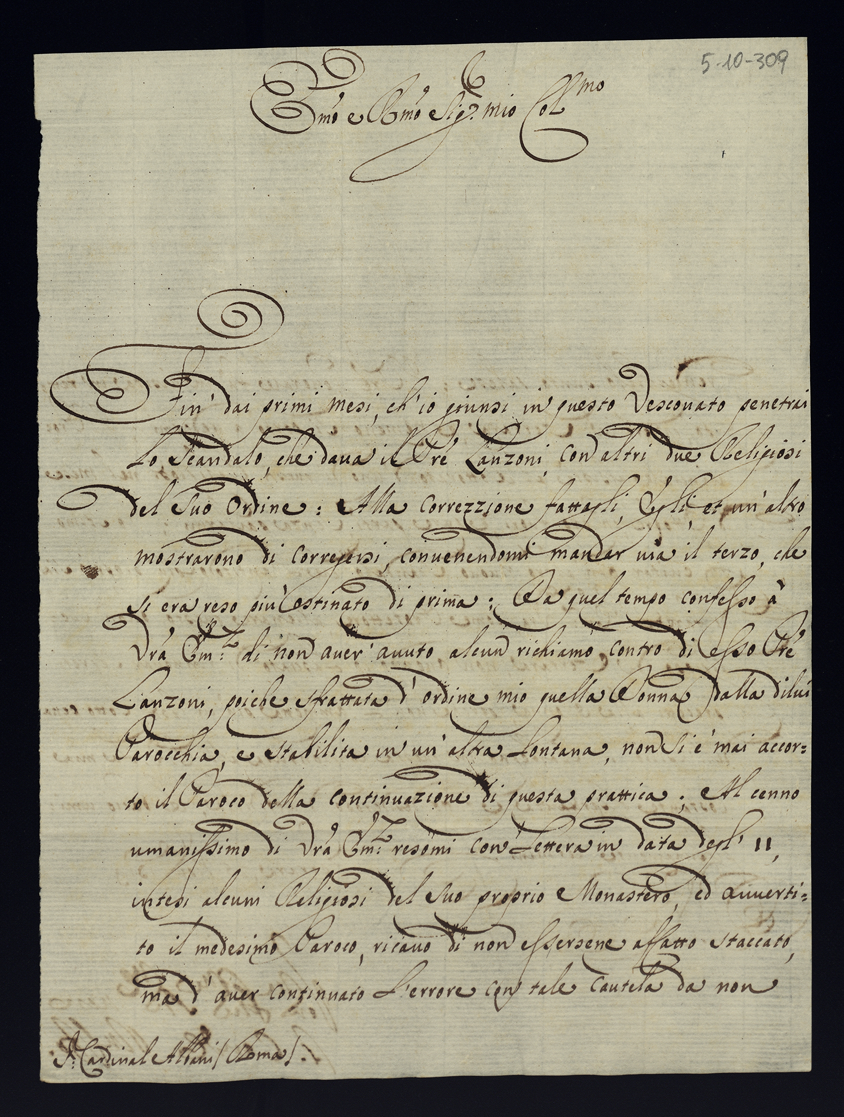 5-10-309
Emo e Rmo Sigr mio Colmo
Fin' dai primi mesi, ch'io giunsi in questo Vescouato penetrai
lo scandalo, che daua il Pre Lanzoni, con altri due Religiosi
del Suo Ordine: Alla correzzione fattagli, Egli et un' altro
mostrarono di corregersi, conuenendomi mandar uia il terzo, che
si era reso più ostinato di prima: Da quel tempo confesso à
Vrã Emza di non auer' auuto alcun richiamo contro di esso Pre
Lanzoni, poiche sfrattata d'ordine mio quella Donna dalla dilui
Parocchia, e stabilita in un' altra lontana, non si è mai accor=
to il Paroco della continuazione di questa prattica: Al cenno
umanissimo di Vrã Emza resomi con Lettera in data degl' 11,
intesi alcuni Religiosi del suo proprio Monastero, ed auuerti=
to il medesimo Paroco, ricauo di non essersene affatto staccato,
ma d'auer continuato l'errore con tale cautela da non
Sr Cardinal Albani (Roma).